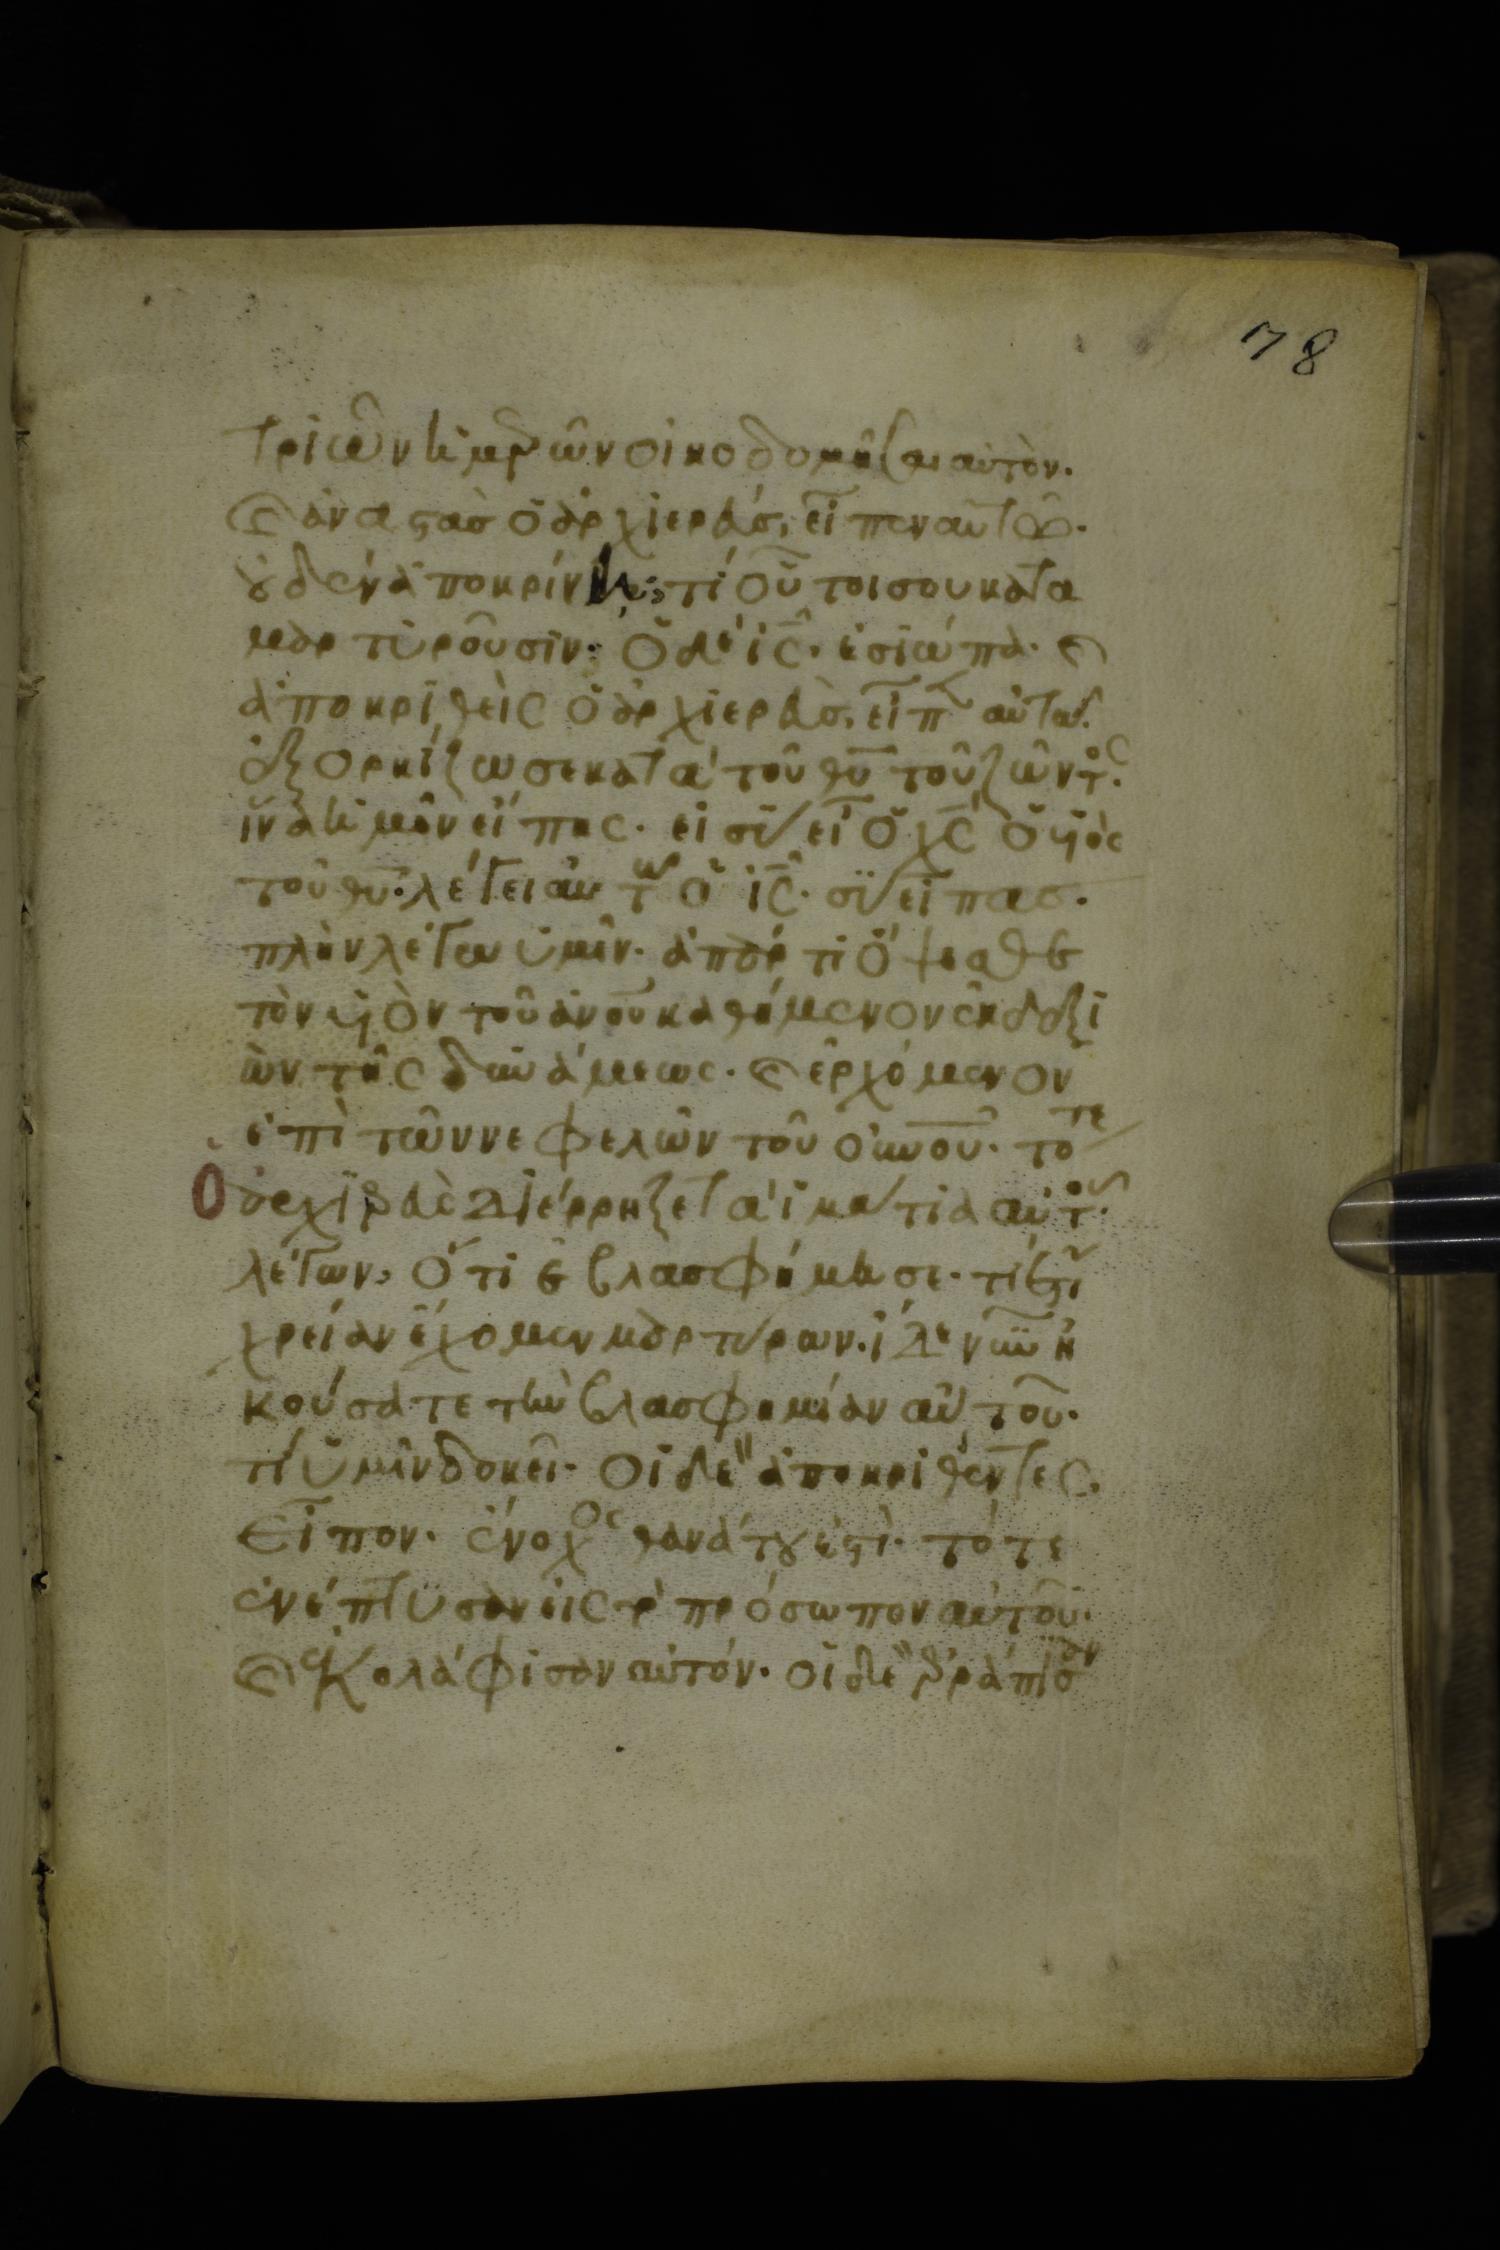 78
τριῶν ἡμερῶν οἰκοδομῆσαι αὐτὸν.
καὶ ἀναστὰσ ὁ ἀρχιερεύσ, εἶπεν αὐτῶ.
οὐδὲν ἀποκρίνη; τί οὗτοι σου κατα
μαρτυροῦσιν; ὁ δὲ ις̅. ἐσιώπα. καὶ
ἀποκριθεὶς ὁ ἀρχιερεὺσ, εἶπ αὐτῶ.
ἐξορκίζω σε κατὰ τοῦ θυ̅ τοῦ ζῶντος.
ἵνα ἡμῖν εἴπης. εἰ σὺ εἶ ὁ χς̅ ὁ υἱὸς
τοῦ θυ̅. λέγει αὐτῶ ὁ ις̅. σὺ εἶπασ.
πλὴν λέγω ὑμῖν. ἀπάρτι ὄψεσθε
τὸν υἱὸν τοῦ ἀνου̅ καθήμενον ἐκ δεξι
ὼν τῆς δυνάμεως. καὶ ἐρχόμενον
ἐπὶ τῶν νεφελῶν τοῦ οὐνου̅. τότε
ὁ ἀρχιερεὺς διέρρηξε τὰ ἱμάτια αὐτοῦ.
λέγων, ὅτι ἐβλασφήμησε. τί ἔτι
χρείαν ἔχομεν μαρτύρων. ἴδε νῦν ἠ
κούσατε τὴν βλασφημίαν αὐτοῦ.
τί ὑμῖν δοκεῖ. οἱ δὲ ἀποκριθέντες,
εἶπον. ἔνοχος θανάτου ἐστὶ. τότε
ἐνέπτυσαν εἰς τὸ πρόσωπον αὐτοῦ.
καὶ ἐκολάφισαν αὐτόν. οἱ δὲ ἐρράπισαν